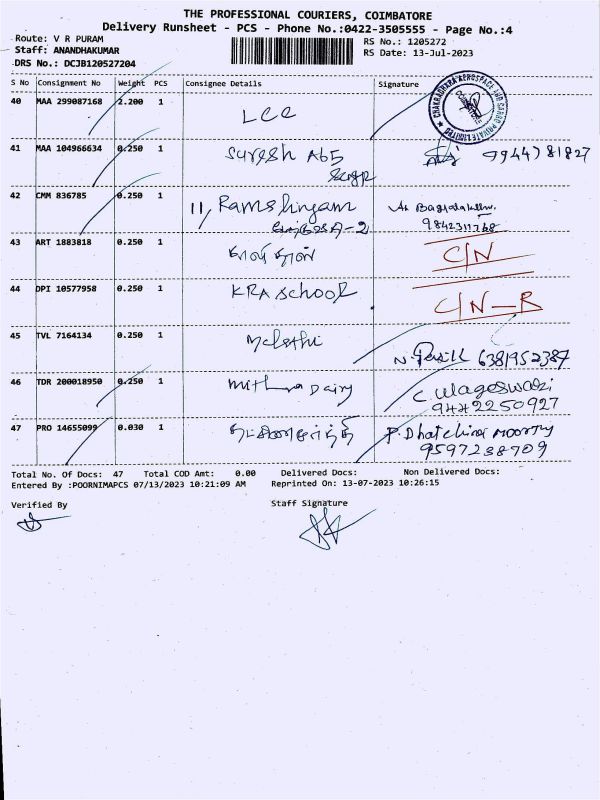 THE PROFESSIONAL COURIERS, COIMBATORE
Delivery Runsheet - PCS - Phone No.:0422-3505555 - Page No.:4
Route: V R PURAM
RS No.: 1205272
Staff: ANANDHAKUMAR
RS Date: 13-Jul-2023
DRS No.: DCJB120527204
S No Consignment No Weight PCS Consignee Details Signature
40 MAA 299087168 2.200 1 LCC
CHAKRADHARA AEROSPACE AND CARGO PRIVATE LIMITED
41 MAA 104966634 0.250 1 Suresh A65 9944781827
42 CMM 836785 0.250 1 11, Ramalingam
9842311768
43 ART 1883818 0.250 1 C/N
44 DPI 10577958 0.250 1 KRA School C/N-R
45 TVL 7164134 0.250 1 Malathi 6381952387
46 TDR 200018950 0.250 1 Mithra Dairy C. Ulageswari
9442250927
47 PRO 14655099 0.030 1 P. Dhatchina Moorthy
9597238709
Total No. Of Docs: 47 Total COD Amt: 0.00 Delivered Docs: Non Delivered Docs:
Entered By :POORNIMAPCS 07/13/2023 10:21:09 AM Reprinted On: 13-07-2023 10:26:15
Verified By Staff Signature